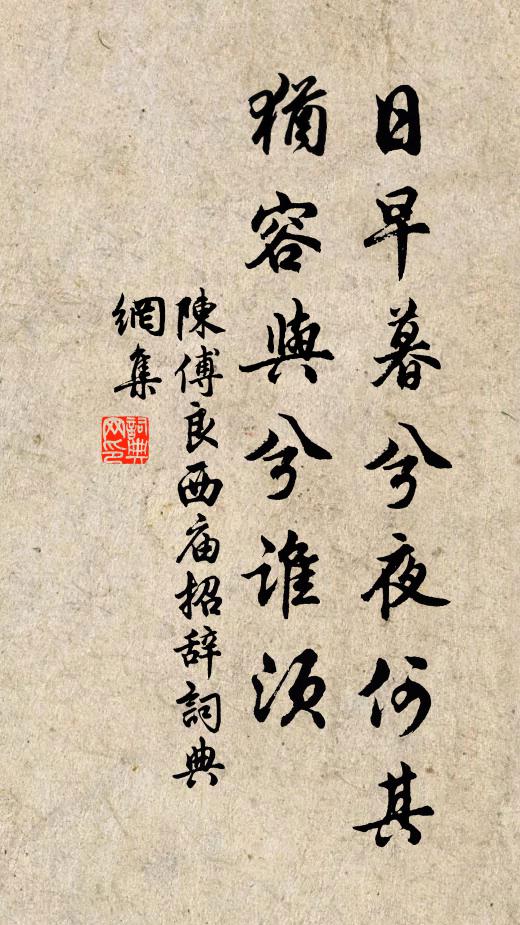 日早暮兮夜何其
猶容與兮誰須
陳傅良西庙招辞詞典
網集
詞典
网印